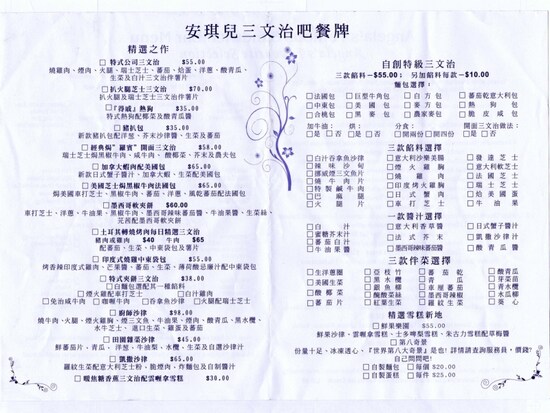 安琪兒三文治吧餐牌
精選之作
特式公司三文治 $55.00
燒雞肉、煙肉、火腿、瑞士芝士、蕃茄、焓蛋、洋蔥、酸青瓜、
生菜及白汁三文治伴薯片
扒火腿芝士三文治 $70.00
扒火腿及瑞士芝士三文治伴薯片
熱狗 $35.00
特式熱狗配椰菜及酸青瓜醬
豬扒包 $35.00
新款豬扒包配洋蔥、芥末沙律醬、生菜及蕃茄
開面三文治 $58.00
瑞士芝士焗黑椒牛肉、咸牛肉、酸椰菜、芥末及農夫包
加拿大蝦肉配美國包 $65.00
新款日式蟹子醬汁、加拿大蝦、生菜配美國包
美國芝士焗黑椒牛肉法國包 $65.00
焗美國車打芝士、黑椒牛肉、蕃茄、洋蔥、風乾蕃茄配法國包
墨西哥軟夾餅 $60.00
車打芝士、洋蔥、牛油果、黑椒牛肉、墨西哥辣味蕃茄醬、牛油果醬、生菜絲、
芫茜配墨西哥軟夾餅
土耳其轉燒烤肉每日精選三文治
豬肉或雞肉 $40 牛肉 $65
配蕃茄、生菜、中東袋包及薯片
印度式燒雞中東袋包 $55.00
烤香辣印度式雞肉、芒果醬、蕃茄、生菜、薄荷酸忌廉汁配中東袋包
特式夾餅 $38.00
白麵包選配其一樣餡料
煙火雞配車打芝士 白汁雞肉
免治咸牛肉 咖喱牛肉 吞拿魚沙律 火腿配瑞士芝士
廚師沙律 $98.00
燒牛肉、火腿、煙火雞胸、煙三文魚、牛油果、煙肉、酸青瓜、黑水欖、
水牛芝士、進口生菜、雞蛋及蕃茄
田園雜菜沙律 $45.00
鮮蕃茄片、青瓜、洋蔥、牛油梨、水欖、生菜及自選沙律汁
凱撒沙律 $65.00
羅紋生菜配意大利芝士粉、脆煙肉、炸麵包及自制醬汁
暖焦糖香蕉三文治配雲喱拿雪糕 $38.00
自創特級三文治
三款餡料－$55.00；另加餡料每款－$10.00
麵包選擇：
法國包 巨型牛角包 白方包 蕃茄乾意大利包
中東包 美國包 麥方包 熱狗包
合桃包 黑麥包 農家麥包 脆皮咸包
加牛油： 烘： 分食： 開面三文治做法：
是 否 是 否 開兩份 開四份 是 否
三款餡料選擇
白汁吞拿魚沙律 意大利沙樂美腸 替達芝士
辣味沙甸 煙火雞胸 意大利軟芝士
挪威煙三文魚片 煙肉 法國芝士
燒牛肉片 火雞胸 瑞士芝士
特製鹹牛肉 印度烤火雞胸 車打芝士
巴馬腿 日式蟹肉 焓美國蛋
火腿 車打芝士 牛油果
一款醬汁選擇
白汁 意大利香草醬 日式蟹子醬汁
蜜糖芥末汁 法式芥末 凱撒沙律汁
蕃茄白汁 美國芥末 酸青瓜醬
牛油果醬 墨西哥辣味蕃茄醬
三款伴菜選擇
生洋蔥圈 亞枝竹 蕃茄乾 酸青瓜
美國生菜 黑水欖 青瓜 芽菜
酸椰菜 銀魚柳 車厘蕃茄 青水欖
蕃茄片 酸酸菜絲 墨西哥辣椒 水瓜柳
紅葉生菜 羅紋生菜 葵心
精選雪糕新地
鮮果樂園 $55.00
鮮果沙律、雲喱拿雪糕、士多啤梨雪糕、朱古力雪糕配草莓醬
第八奇景
份量十足，冰凍透心，『世界第八大奇景』是也！詳情請查詢服務員，價錢？
自己問問吧！
自製麵包 每個 $20.00
自製蛋糕 每件 $25.00